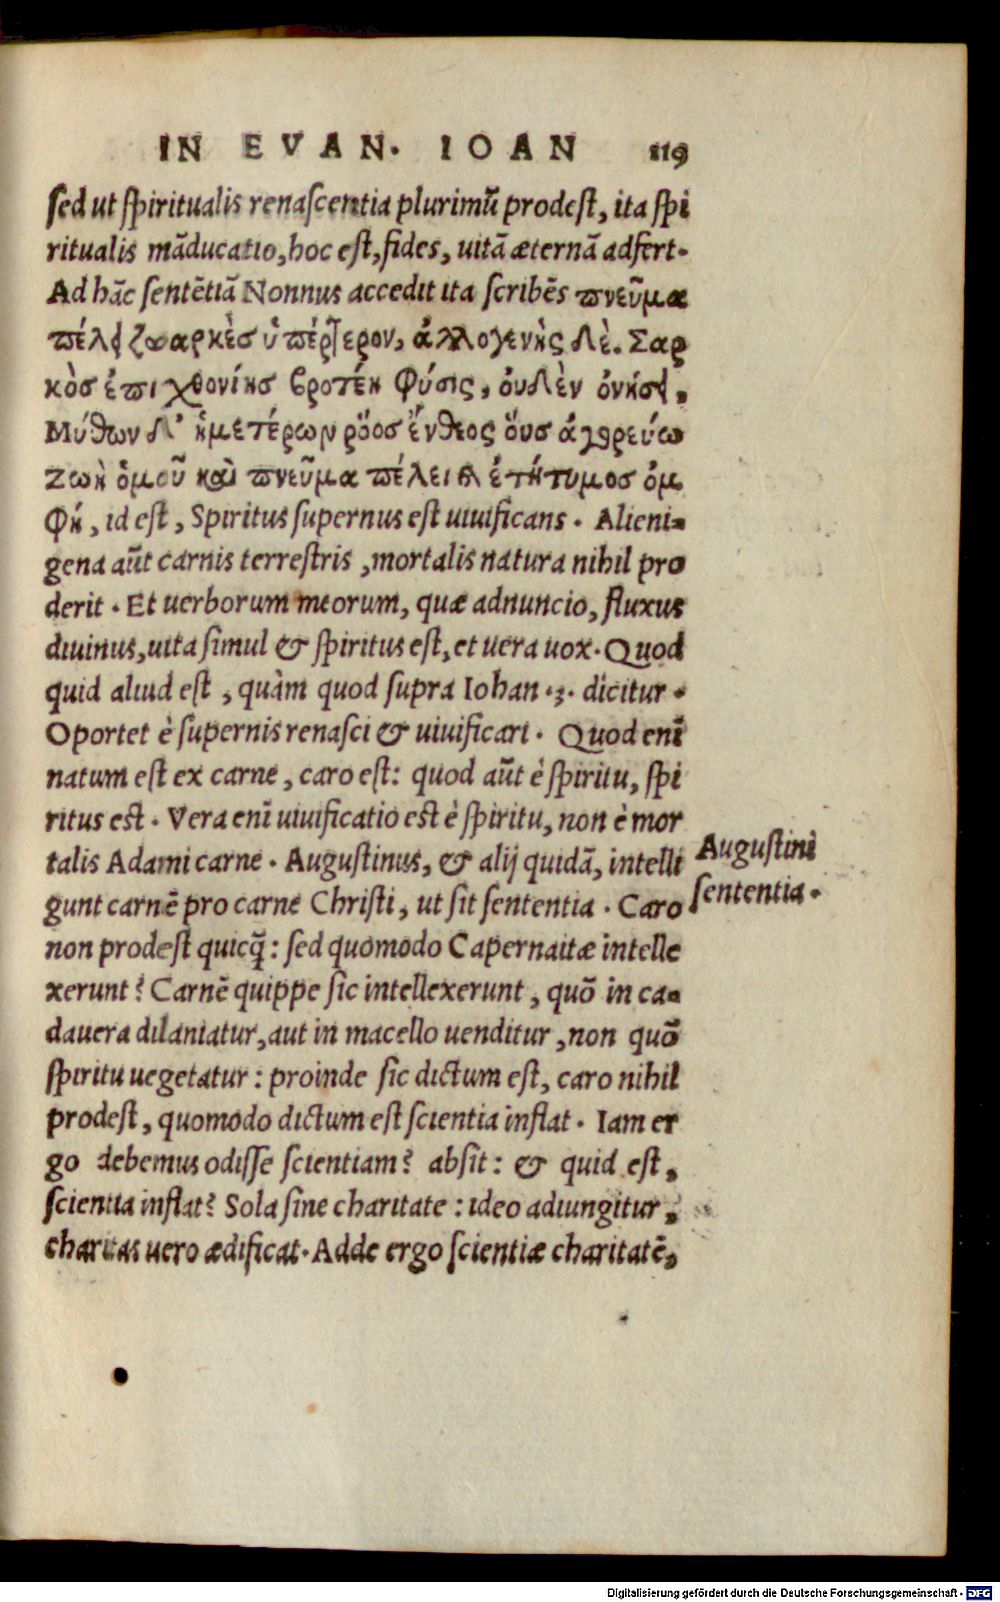 IN EVAN. IOAN 119
sed ut spiritualis renascentia plurimũ prodest, ita spi
ritualis mãducatio, hoc est, fides, uitã æternã adfert.
Ad hãc sentẽtiã Nonnus accedit ita scribẽs πνεῦμα
πέλει ζωαρκὲσ ὑπέρτερον, ἀλλογενὴς δὲ. Σαρ
κὸσ ἐπιχθονίησ βροτέη φύσις, ὀυδὲν ὀνήσει,
Μύθων δ' ἡμετέρων ῥόοσ ἔνθεος ὅυσ ἀγορεύω
Ζωὴ ὁμοῦ καὶ πνεῦμα πέλει ἐτήτυμος ὀμ
φή, id est, Spiritus supernus est uiuificans. Alieni-
gena aũt carnis terrestris, mortalis natura nihil pro
derit. Et uerborum meorum, quæ adnuncio, fluxus
diuinus, uita simul & spiritus est, et uera uox. Quod
quid aliud est, quàm quod supra Iohan. 3. dicitur.
Oportet è supernis renasci & uiuificari. Quod enĩ
natum est ex carne, caro est: quod aũt è spiritu, spi
ritus est. Vera enĩ uiuificatio est è spiritu, non è mor
talis Adami carne. Augustinus, & alij quidã, intelli
gunt carnẽ pro carne Christi, ut sit sententia. Caro
non prodest quicq̃: sed quomodo Capernaitæ intelle
xerunt? Carnẽ quippe sic intellexerunt, quõ in ca-
dauera dilaniatur, aut in macello uenditur, non quõ
spiritu uegetatur: proinde sic dictum est, caro nihil
prodest, quomodo dictum est scientia inflat. Iam er
go debemus odisse scientiam? absit: & quid est,
scientia inflat? Sola sine charitate: ideo adiungitur,
charitas uero ædificat. Adde ergo scientiæ charitatẽ,
Augustini
sententia.
Digitalisierung gefördert durch die Deutsche Forschungsgemeinschaft - DFG